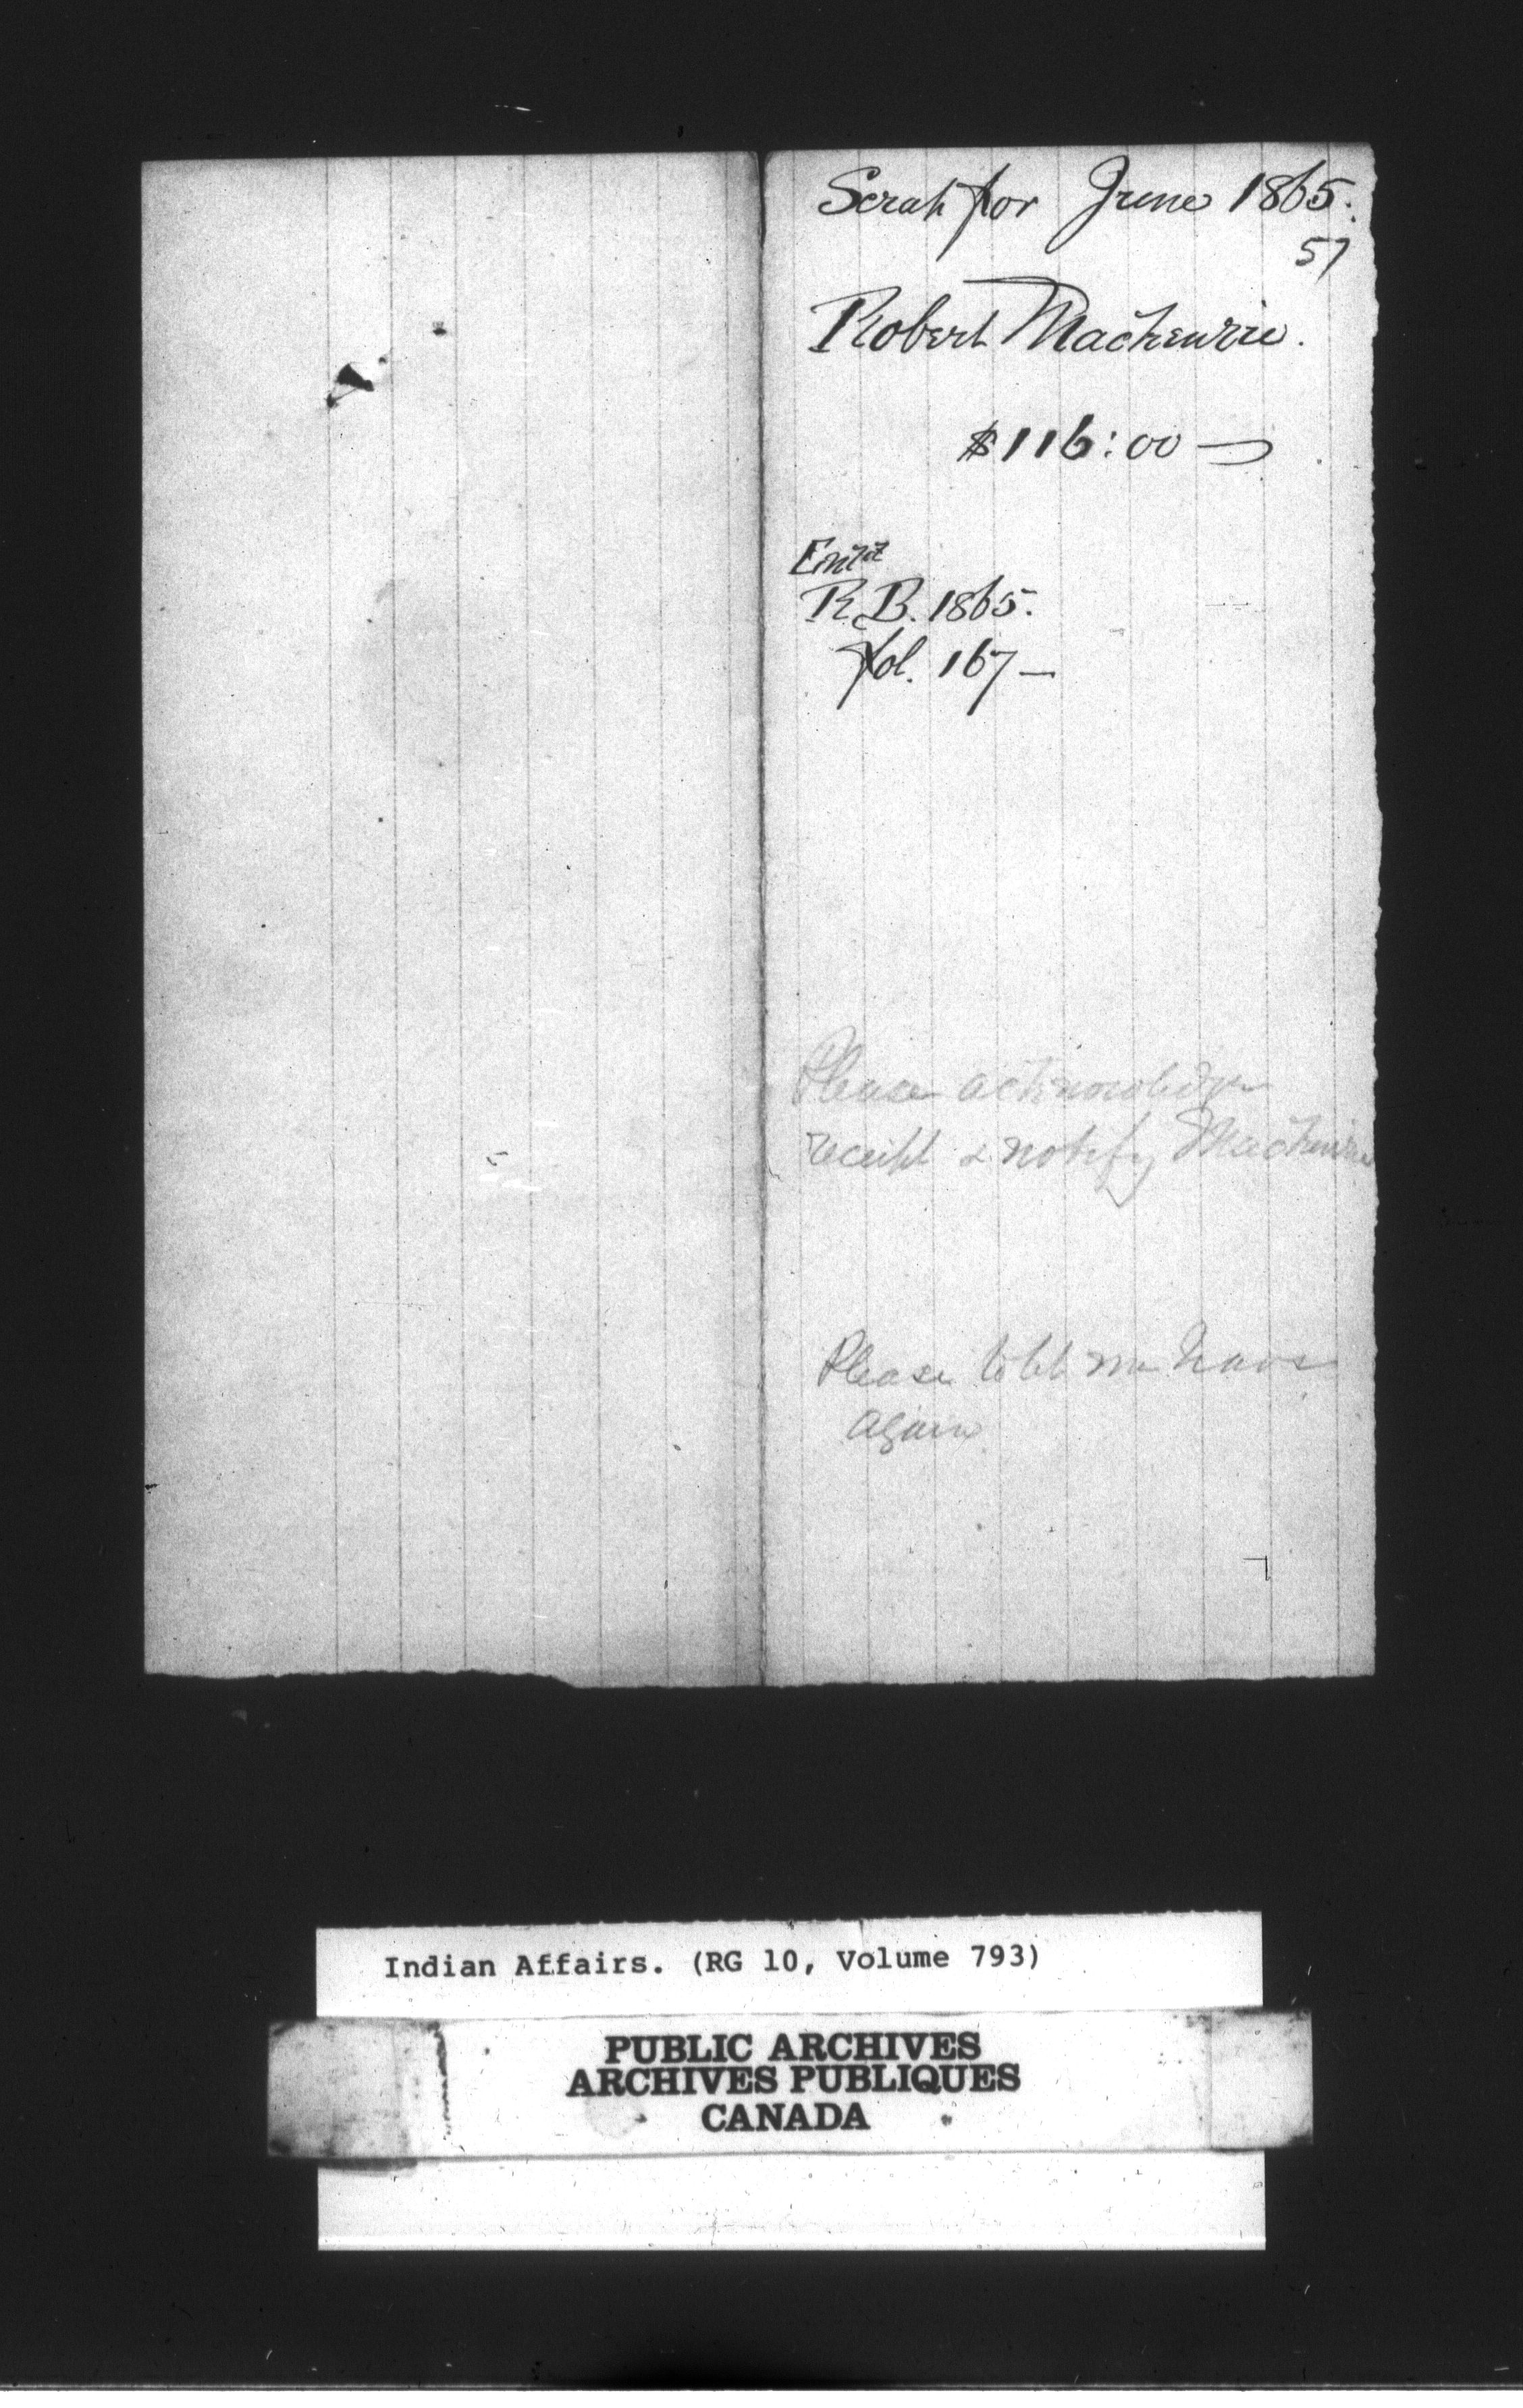 Sarah for June 1865.
57
Robert Mackenzie.
$116:00
Entd
R.B. 1865.
fol. 167 —
Please acknowledge
receipt & notify Mackenzie
Please let me have
again
Indian Affairs. (RG 10, Volume 793)
PUBLIC ARCHIVES
ARCHIVES PUBLIQUES
CANADA